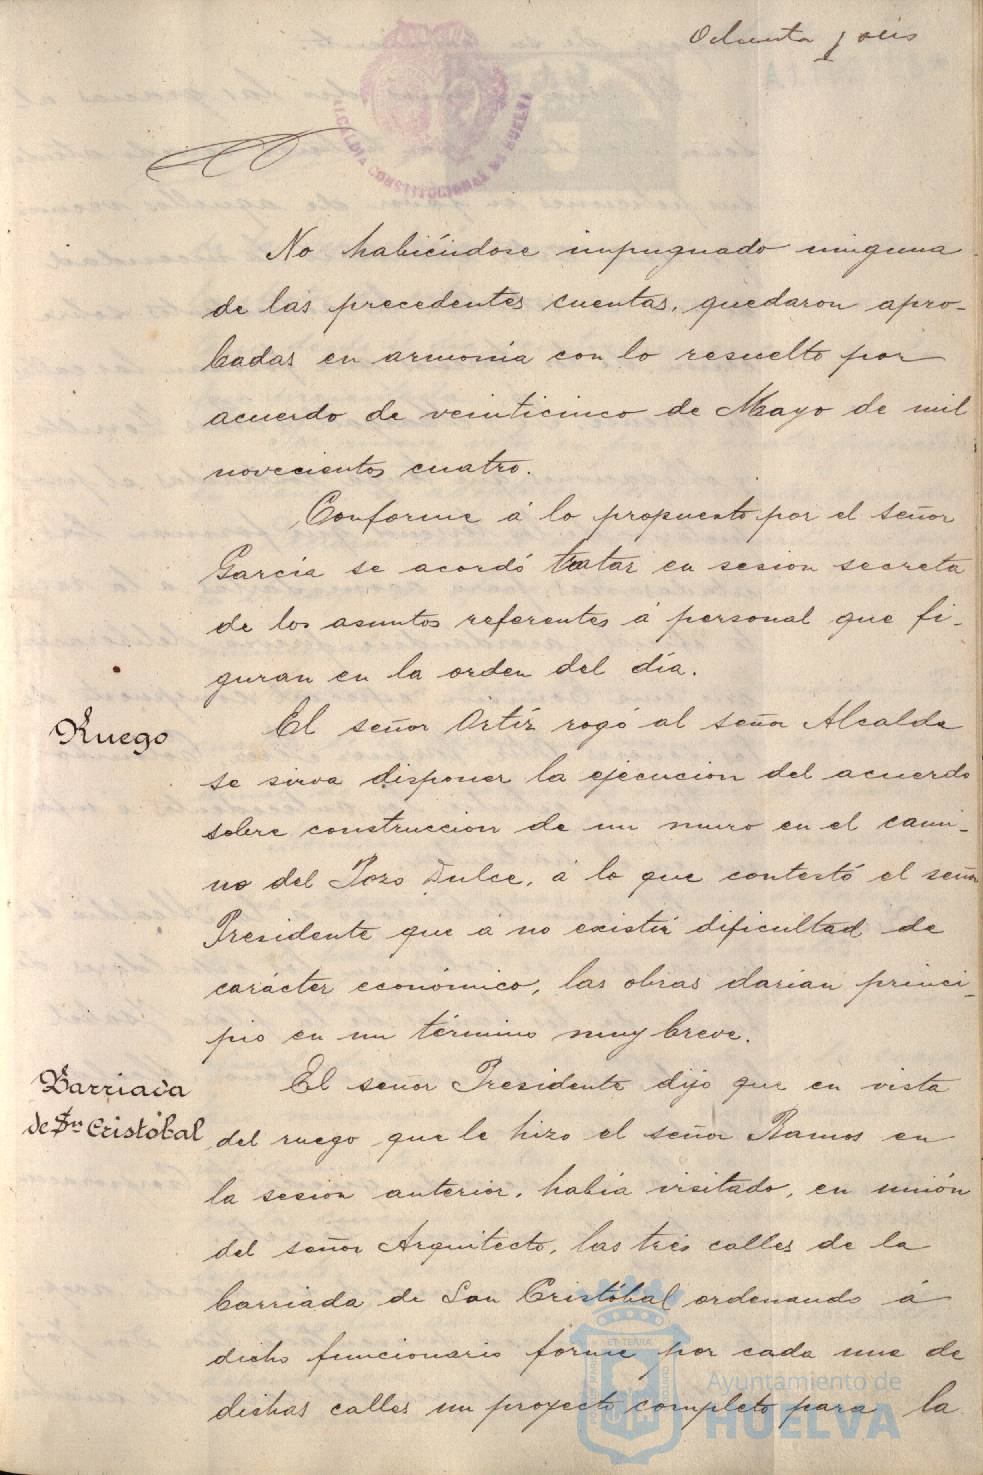 Ochenta y seis
ALCALDIA CONSTITUCIONAL DE HUELVA
No habiéndose impugnado ninguna
de las precedentes cuentas, quedaron apro-
badas en armonía con lo resuelto por
acuerdo de veinticinco de Mayo de mil
novecientos cuatro.
Conforme á lo propuesto por el señor
García se acordó tratar en sesion secreta
de los asuntos referentes á personal que fi-
guran en la orden del día.
Ruego
El señor Ortíz rogó al señor Alcalde
se sirva disponer la ejecucion del acuerdo
sobre construccion de un muro en el cami-
no del Pozo Dulce, á lo que contestó el señor
Presidente que á no existir dificultad de
carácter económico, las obras darían princi-
pio en un término muy breve.
Barriada
de Sn Cristóbal
El señor Presidente dijo que en vista
del ruego que le hizo el señor Ramos en
la sesion anterior, había visitado, en unión
del señor Arquitecto, las tres calles de la
barriada de San Cristóbal ordenando á
dicho funcionario forme por cada una de
dichas calles un proyecto completo para la
Ayuntamiento de
HUELVA